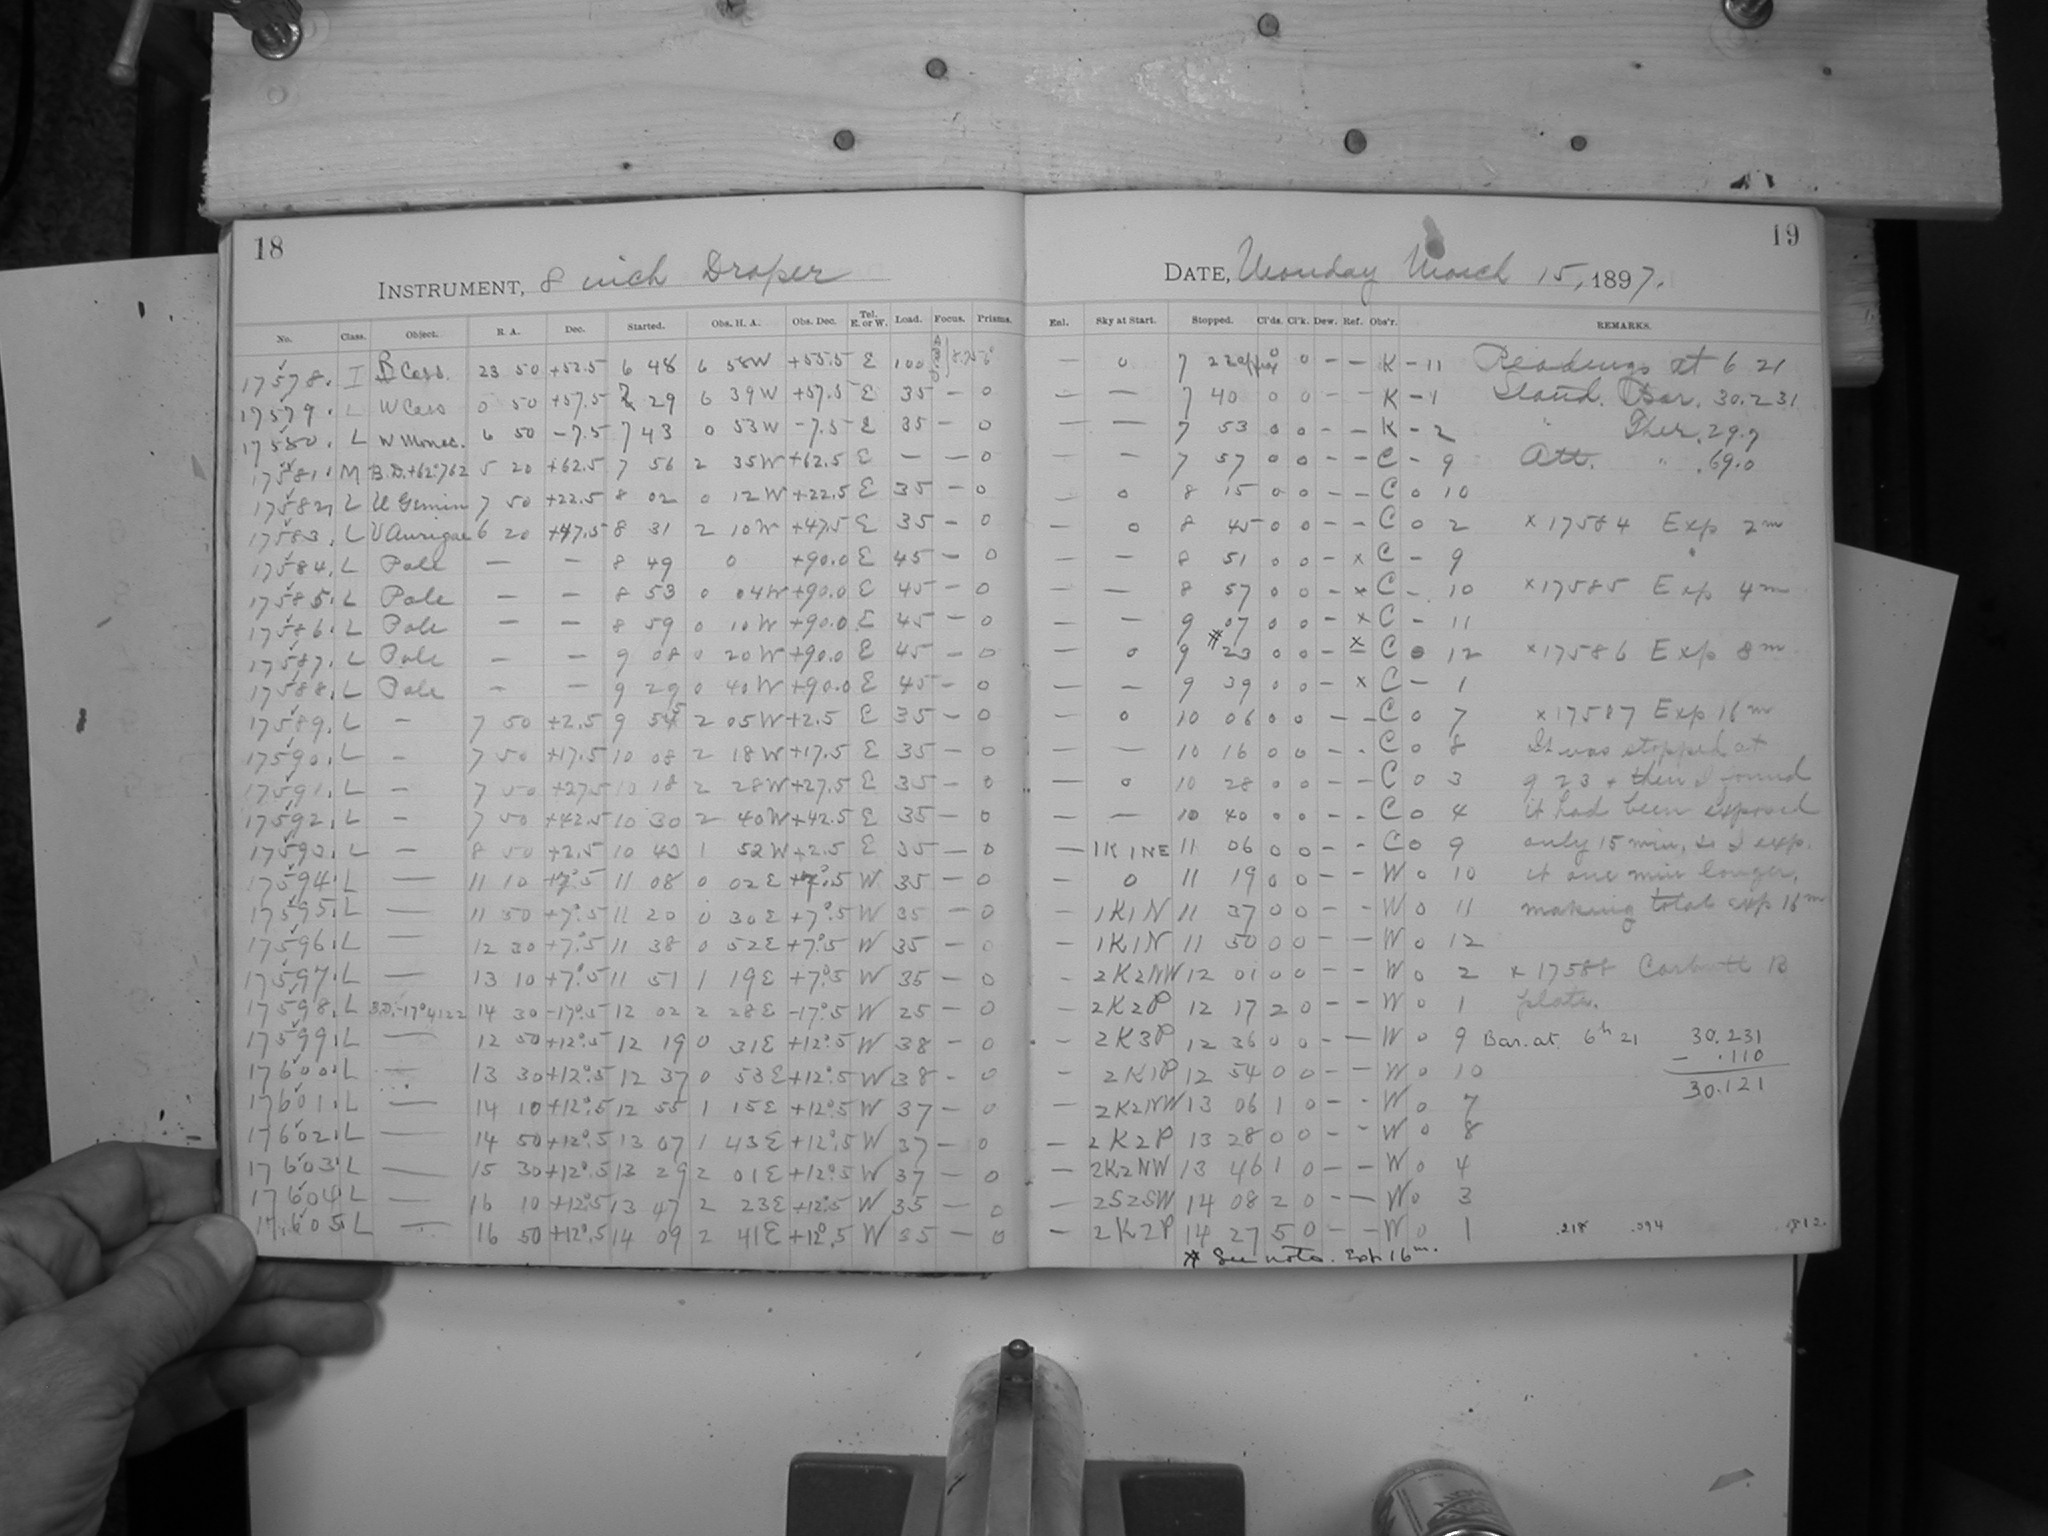 18
INSTRUMENT, 8 inch Draper
No. Class. Object. R. A. Dec. Started. Obs. H. A. Obs. Dec. Tel. E. or W. Load. Focus. Prisms.
17578. I R Cass. 23 50 +52.5 6 48 6 58W +55.5 E 100
17579. L W Cass 0 50 +57.5 7 29 6 39W +57.5 E 35 – 0
17580. L W Monoc. 6 50 –7.5 7 43 0 53W –7.5 E 35 – 0
17581. M B.D.+62°762 5 20 +62.5 7 56 2 35W +62.5 E — — 0
17582. L U Gemin 7 50 +22.5 8 02 0 12W +22.5 E 35 – 0
17583. L V Aurigae 6 20 +47.5 8 31 2 10W +47.5 E 35 – 0
17584. L Pole — — 8 49 0 +90.0 E 45 – 0
17585. L Pole — — 8 53 0 04W +90.0 E 45 – 0
17586. L Pole — — 8 59 0 10W +90.0 E 45 – 0
17587. L Pole — — 9 08 0 20W +90.0 E 45 – 0
17588. L Pole — — 9 29 0 40W +90.0 E 45 – 0
17589. L – 7 50 +2.5 9 54 2 05W +2.5 E 35 – 0
17590. L – 7 50 +17.5 10 08 2 18W +17.5 E 35 – 0
17591. L – 7 50 +27.5 10 18 2 28W +27.5 E 35 – 0
17592. L – 7 50 +42.5 10 30 2 40W +42.5 E 35 – 0
17593. L — 8 50 +2.5 10 43 1 52W +2.5 E 35 – 0
17594. L — 11 10 +7°.5 11 08 0 02E +7°.5 W 35 – 0
17595. L — 11 50 +7°.5 11 20 0 30E +7°.5 W 35 – 0
17596. L — 12 30 +7°.5 11 38 0 52E +7°.5 W 35 – 0
17597. L — 13 10 +7°.5 11 51 1 19E +7°.5 W 35 – 0
17598. L B.D.-17°4122 14 30 -17°.5 12 02 2 28E -17°.5 W 25 – 0
17599. L — 12 50 +12°.5 12 19 0 31E +12°.5 W 38 – 0
17600. L — 13 30 +12°.5 12 37 0 53E +12°.5 W 38 – 0
17601. L — 14 10 +12°.5 12 55 1 15E +12°.5 W 37 – 0
17602. L — 14 50 +12°.5 13 07 1 43E +12°.5 W 37 – 0
17603. L — 15 30 +12°.5 13 29 2 01E +12°.5 W 37 – 0
17604. L — 16 10 +12°.5 13 47 2 23E +12°.5 W 35 – 0
17605. L — 16 50 +12°.5 14 09 2 41E +12°.5 W 35 – 0
19
DATE, Monday March 15, 1897.
Enl. Sky at Start. Stopped. Cl'ds. Cl'k. Dew. Ref. Obs'r. REMARKS.
— 0 7 22 0 0 – – K – 11 Readings at 6 21
— — 7 40 0 0 – – K – 1 Stand. Bar. 30.231
— — 7 53 0 0 – – K – 2 " Ther. 29.7
— — 7 57 0 0 – – C – 9 Att. " .69.0
— 0 8 15 0 0 – – C 0 10
— 0 8 45 0 0 – – C 0 2 x 17584 Exp 2m
— — 8 51 0 0 – x C – 9
— — 8 57 0 0 – x C – 10 x 17585 Exp 4m
— — 9 07 0 0 – x C – 11
— 0 9 #23 0 0 – x C 0 12 x 17586 Exp 8m
— — 9 39 0 0 – x C – 1
— 0 10 06 0 0 – – C 0 7 x 17587 Exp 16m
— — 10 16 0 0 – – C 0 8 It was stopped at
— 0 10 28 0 0 – – C 0 3 9 23 + then I found
— — 10 40 0 0 – – C 0 4 it had been exposed
— 1K1NE 11 06 0 0 – – C 0 9 only 15 min, so I exp.
— 0 11 19 0 0 – – W 0 10 it one min longer,
— 1K1N 11 37 0 0 – – W 0 11 making total exp 16m
— 1K1N 11 50 0 0 – – W 0 12
— 2K2NW 12 01 0 0 – – W 0 2 x 17588 Carbutt B
— 2K2P 12 17 2 0 – – W 0 1 plate.
— 2K3P 12 36 0 0 – – W 0 9 Bar. at 6h 21 30.231
— 2K1P 12 54 0 0 – – W 0 10 – .110
— 2K2NW 13 06 1 0 – – W 0 7 30.121
— 2K2P 13 28 0 0 – – W 0 8
— 2K2NW 13 46 1 0 – – W 0 4
— 2S2SW 14 08 2 0 – – W 0 3
— 2K2P 14 27 5 0 – – W 0 1 .218 .094 .812.
# See note. Exp. 16m.